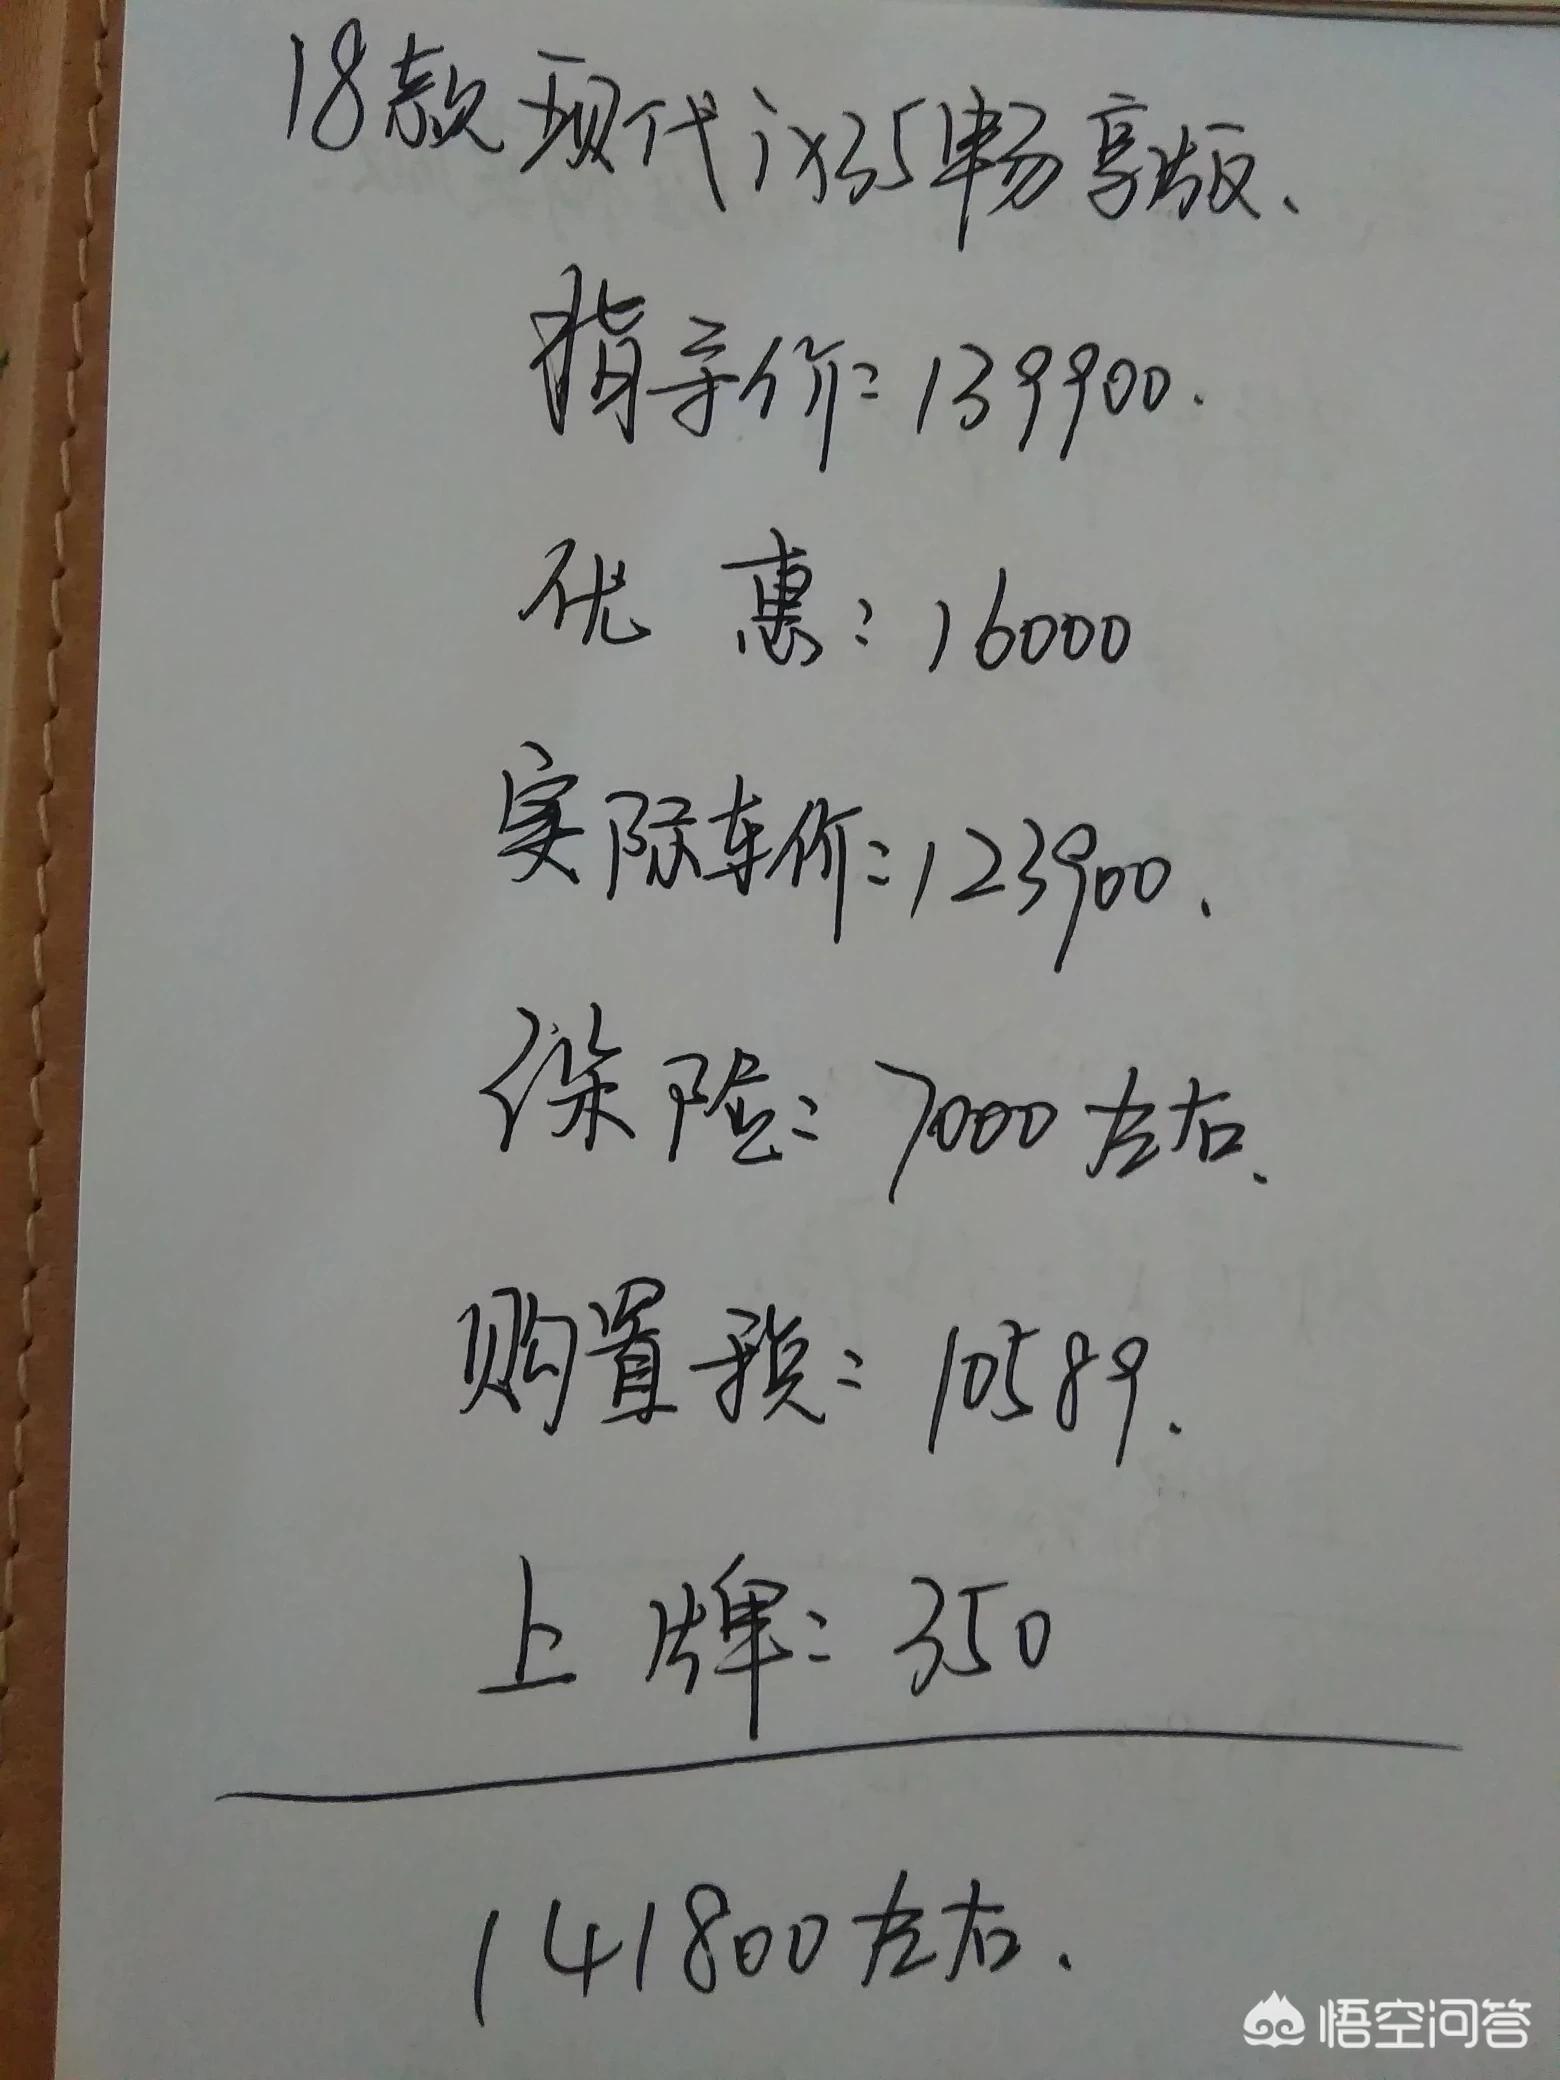 18款现代ix35畅享版、
指导价:139900.
优惠:16000
实际车价:123900.
保险:7000左右.
购置税:10589.
上牌:350
141800左右.
悟空问答